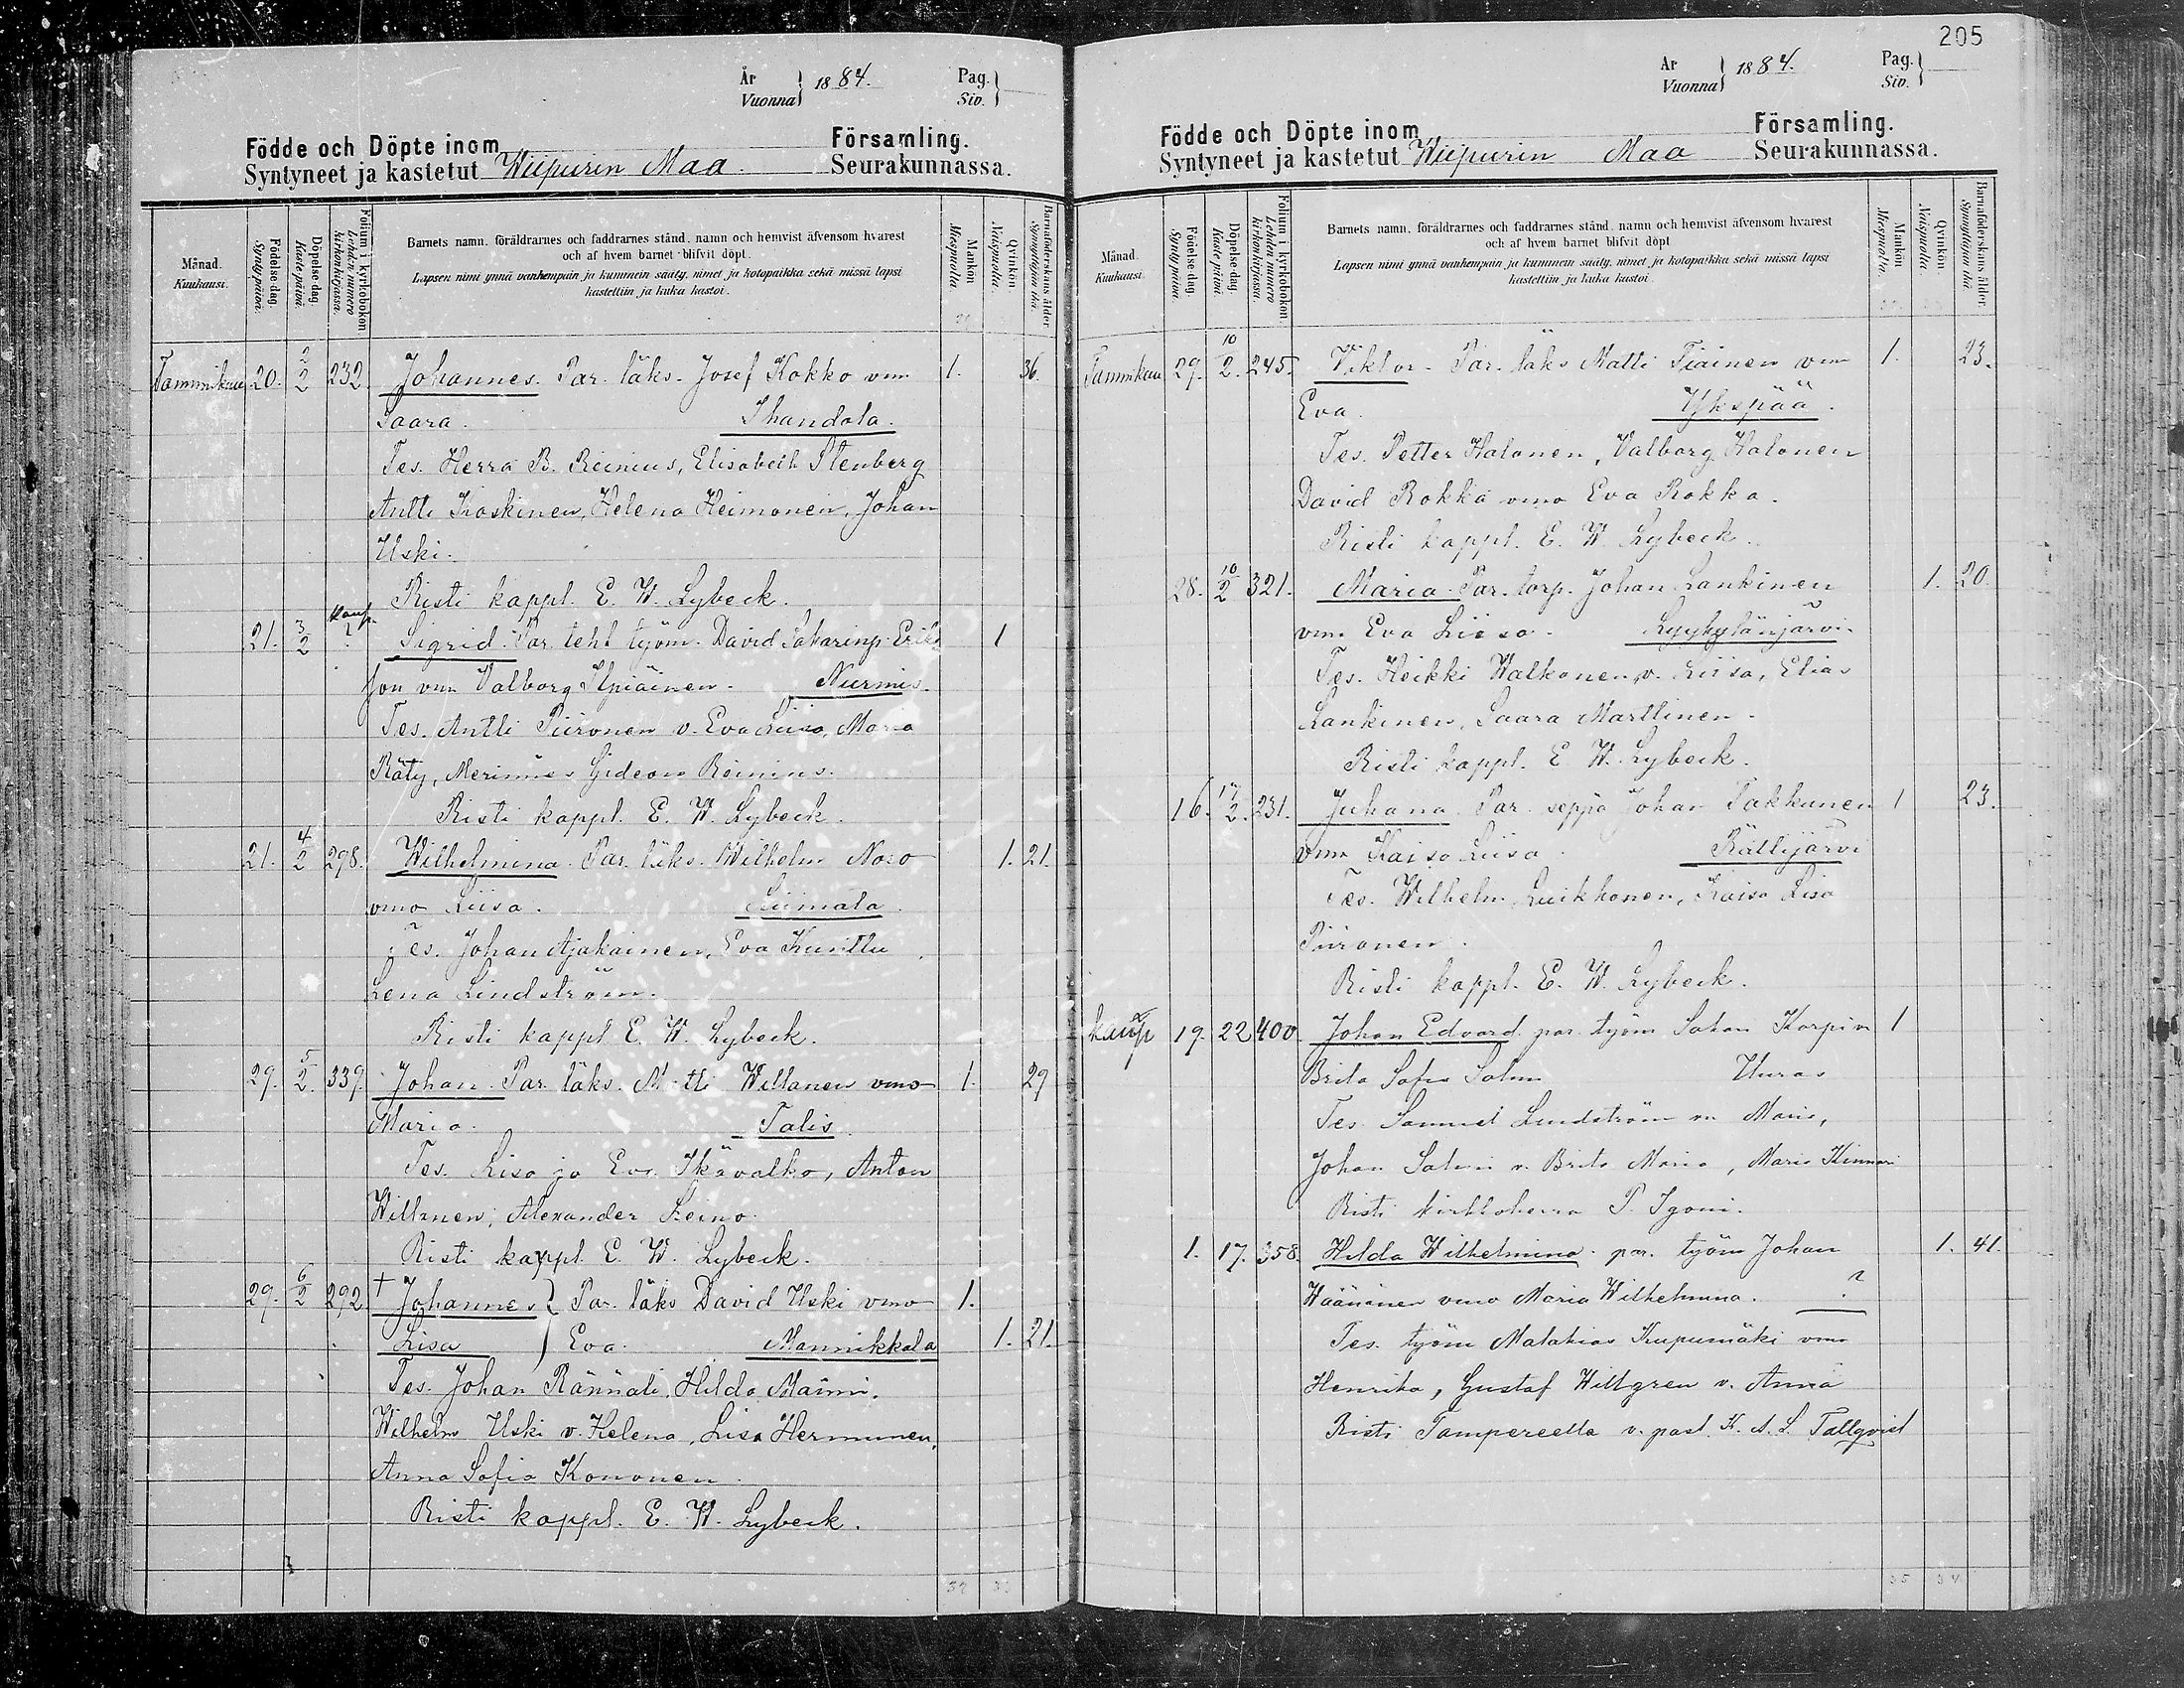 År
Vuonna } 1884.
Pag.
Siv. }
Födde och Döpte inom Församling.
Syntyneet ja kastetut Wiipurin Maa Seurakunnassa.
Månad.
Kuukausi.
Födelse-dag.
Synty päivä.
Döpelse-dag.
Kaste päivä.
Folium i kyrkobokon.
Lehden numero kirkonkirjassa.
Barnets namn, föräldrarnes och faddrarnes stånd, namn och hemvist äfvensom hvarest
och af hvem barnet blifvit döpt.
Lapsen nimi ynnä vanhempain ja kummein sääty, nimet ja kotopaikka sekä missä lapsi
kastettiin ja kuka kastoi.
Mankön
Miespuolia.
Qvinkön
Naispuolia.
Barnaföderskans ålder.
Synnyttäjän ikä.
Tammikuu 20. 2/2 232 Johannes. Par. läks. Josef Kokko vmo 1. 36.
Saara. Ihandala.
Tes. Herra B. Reinius, Elisabeth Stenberg
Antti Koskinen, Helena Heimonen, Johan
Uski.
Risti kappl. E. W. Lybeck.
kaup.
21. 3/2 ? Sigrid. Par. teht työm. David Sakarinp. Eriks 1
son vmo Valborg Ilpiäinen. Nurmis.
Tes. Antti Piironen v. Eva Liisa, Maria
Räty, Merimies Gideon Roinins.
Risti kappl. E. W. Lybeck.
21. 4/2 298. Wilhelmina. Par. läks. Wilhelm Noro 1. 21.
vmo Liisa. Liimala.
Tes. Johan Ajakainen, Eva Kunttu
Lena Lindström.
Risti kappl E. W. Lybeck.
29. 5/2. 339. Johan. Par. läks. Matti Willanen vmo 1. 29
Maria. Talis.
Tes. Lisa ja Eva Ikävalko, Anton
Willanen, Alexander Leino.
Risti kappl. E. W. Lybeck.
29. 6/2 292. † Johannes } Par. läks David Uski vmo 1.
Lisa } Eva. Mannikkala 1. 21.
Tes. Johan Rännäli, Hilda Mainni.
Wilhelm Uski v. Helena, Lisa Hermunen,
Anna Sofia Kononen.
Risti kappl. E. W. Lybeck.
32 33
205
År
Vuonna } 1884.
Pag.
Siv. }
Födde och Döpte inom Församling.
Syntyneet ja kastetut Wiipurin Maa Seurakunnassa.
Månad.
Kuukausi.
Födelse-dag.
Synty päivä.
Döpelse-dag.
Kaste päivä.
Folium i kyrkobokon.
Lehden numero kirkonkirjassa.
Barnets namn, föräldrarnes och faddrarnes stånd, namn och hemvist äfvensom hvarest
och af hvem barnet blifvit döpt
Lapsen nimi ynnä vanhempain ja kummein sääty, nimet ja kotopaikka sekä missä lapsi
kastettiin ja kuka kastoi.
Mankön
Miespuolia.
Qvinkön
Naispuolia.
Barnaföderskans ålder.
Synnyttäjän ikä.
Tammikuu 29. 10/2. 245. Viktor. Par. läks Matti Tiainen vmo 1. 23.
Eva. Ykspää.
Tes. Petter Halonen, Valborg Halonen
David Rokka vmo Eva Rokka.
Risti kappl. E. W. Lybeck.
28. 10/2 321. Maria. Par. torp. Johan Lankinen 1. 20.
vmo Eva Liisa. Lyykylänjärvi.
Tes. Heikki Walkonen, v. Liisa, Elias
Lankinen, Saara Marttinen.
Risti kappl. E W. Lybeck.
16. 17/2. 231. Juhana. Par. seppä Johan Takkunen 1 23.
vmo Kaisa Liisa. Rättijärvi
Tes. Wilhelm Luikkonen, Kaisa Lisa
Piironen.
Risti kappl. E. W. Lybeck.
kaup 19. 22 400 Johan Edvard par. työm Johan Korpi v. 1
Brita Sofia Salm Uuras
Tes. Samuel Lundström v. Maria,
Johan Salmi v. Brita Maria, Maria Kinnari
Risti kirkkoherra P. Igoni.
1. 17. 358. Hilda Wilhelmina. par. työm Johan 1. 41.
Wäänänen vmo Maria Wilhelmina. ?
Tes. työm Matatias Kupumäki vmo
Henrika, Gustaf Willgren v. Anna
Risti Tampereella v. past. K. A. S. Tallqvist
35 34